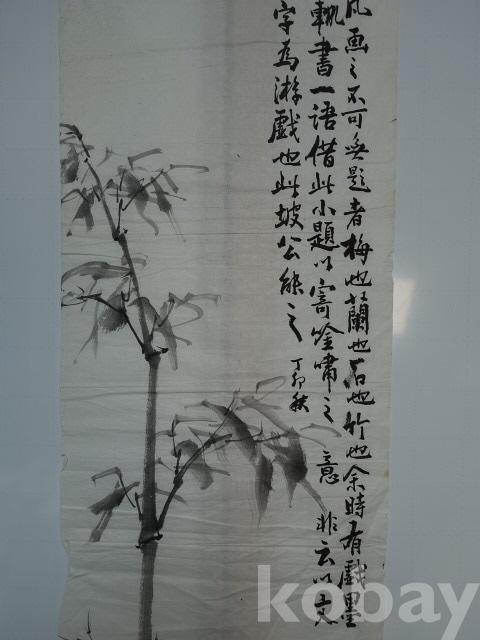 凡画之不可無題者梅也蘭也石也竹也余時有戲墨
輒書一語借此小題以寄吟嘯之意非云以文
字為游戲也此坡公能之
丁卯秋
kobay